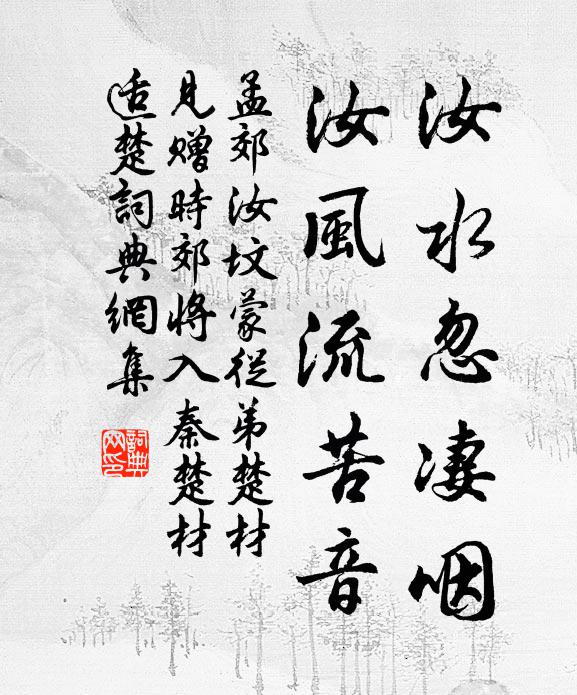 汝水忽淒咽
汝風流苦音
孟郊汝坟蒙從弟楚材
見贈時郊將入秦楚材
适楚詞典網集
詞典网印